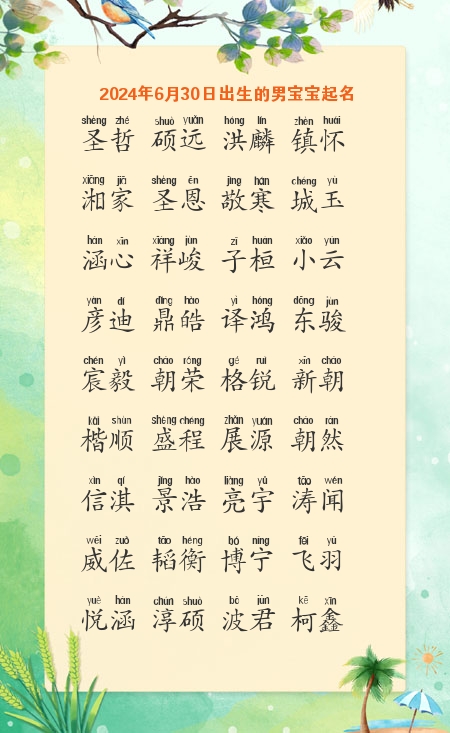 2024年6月30日出生的男宝宝起名
shèng zhé shuò yuǎn hóng lín zhèn huái
圣哲 硕远 洪麟 镇怀
xiāng jiā shèng ēn jìng hán chéng yù
湘家 圣恩 敬寒 城玉
hán xīn xiáng jùn zǐ huán xiǎo yún
涵心 祥峻 子桓 小云
yàn dí dǐng hào yì hóng dōng jùn
彦迪 鼎皓 译鸿 东骏
chén yì cháo róng gé ruì xīn cháo
宸毅 朝荣 格锐 新朝
kǎi shùn shèng chéng zhǎn yuán cháo rán
楷顺 盛程 展源 朝然
xìn qí jǐng hào liàng yǔ tāo wén
信淇 景浩 亮宇 涛闻
wēi zuǒ tāo héng bó níng fēi yǔ
威佐 韬衡 博宁 飞羽
yuè hán chún shuò bō jūn kē xīn
悦涵 淳硕 波君 柯鑫